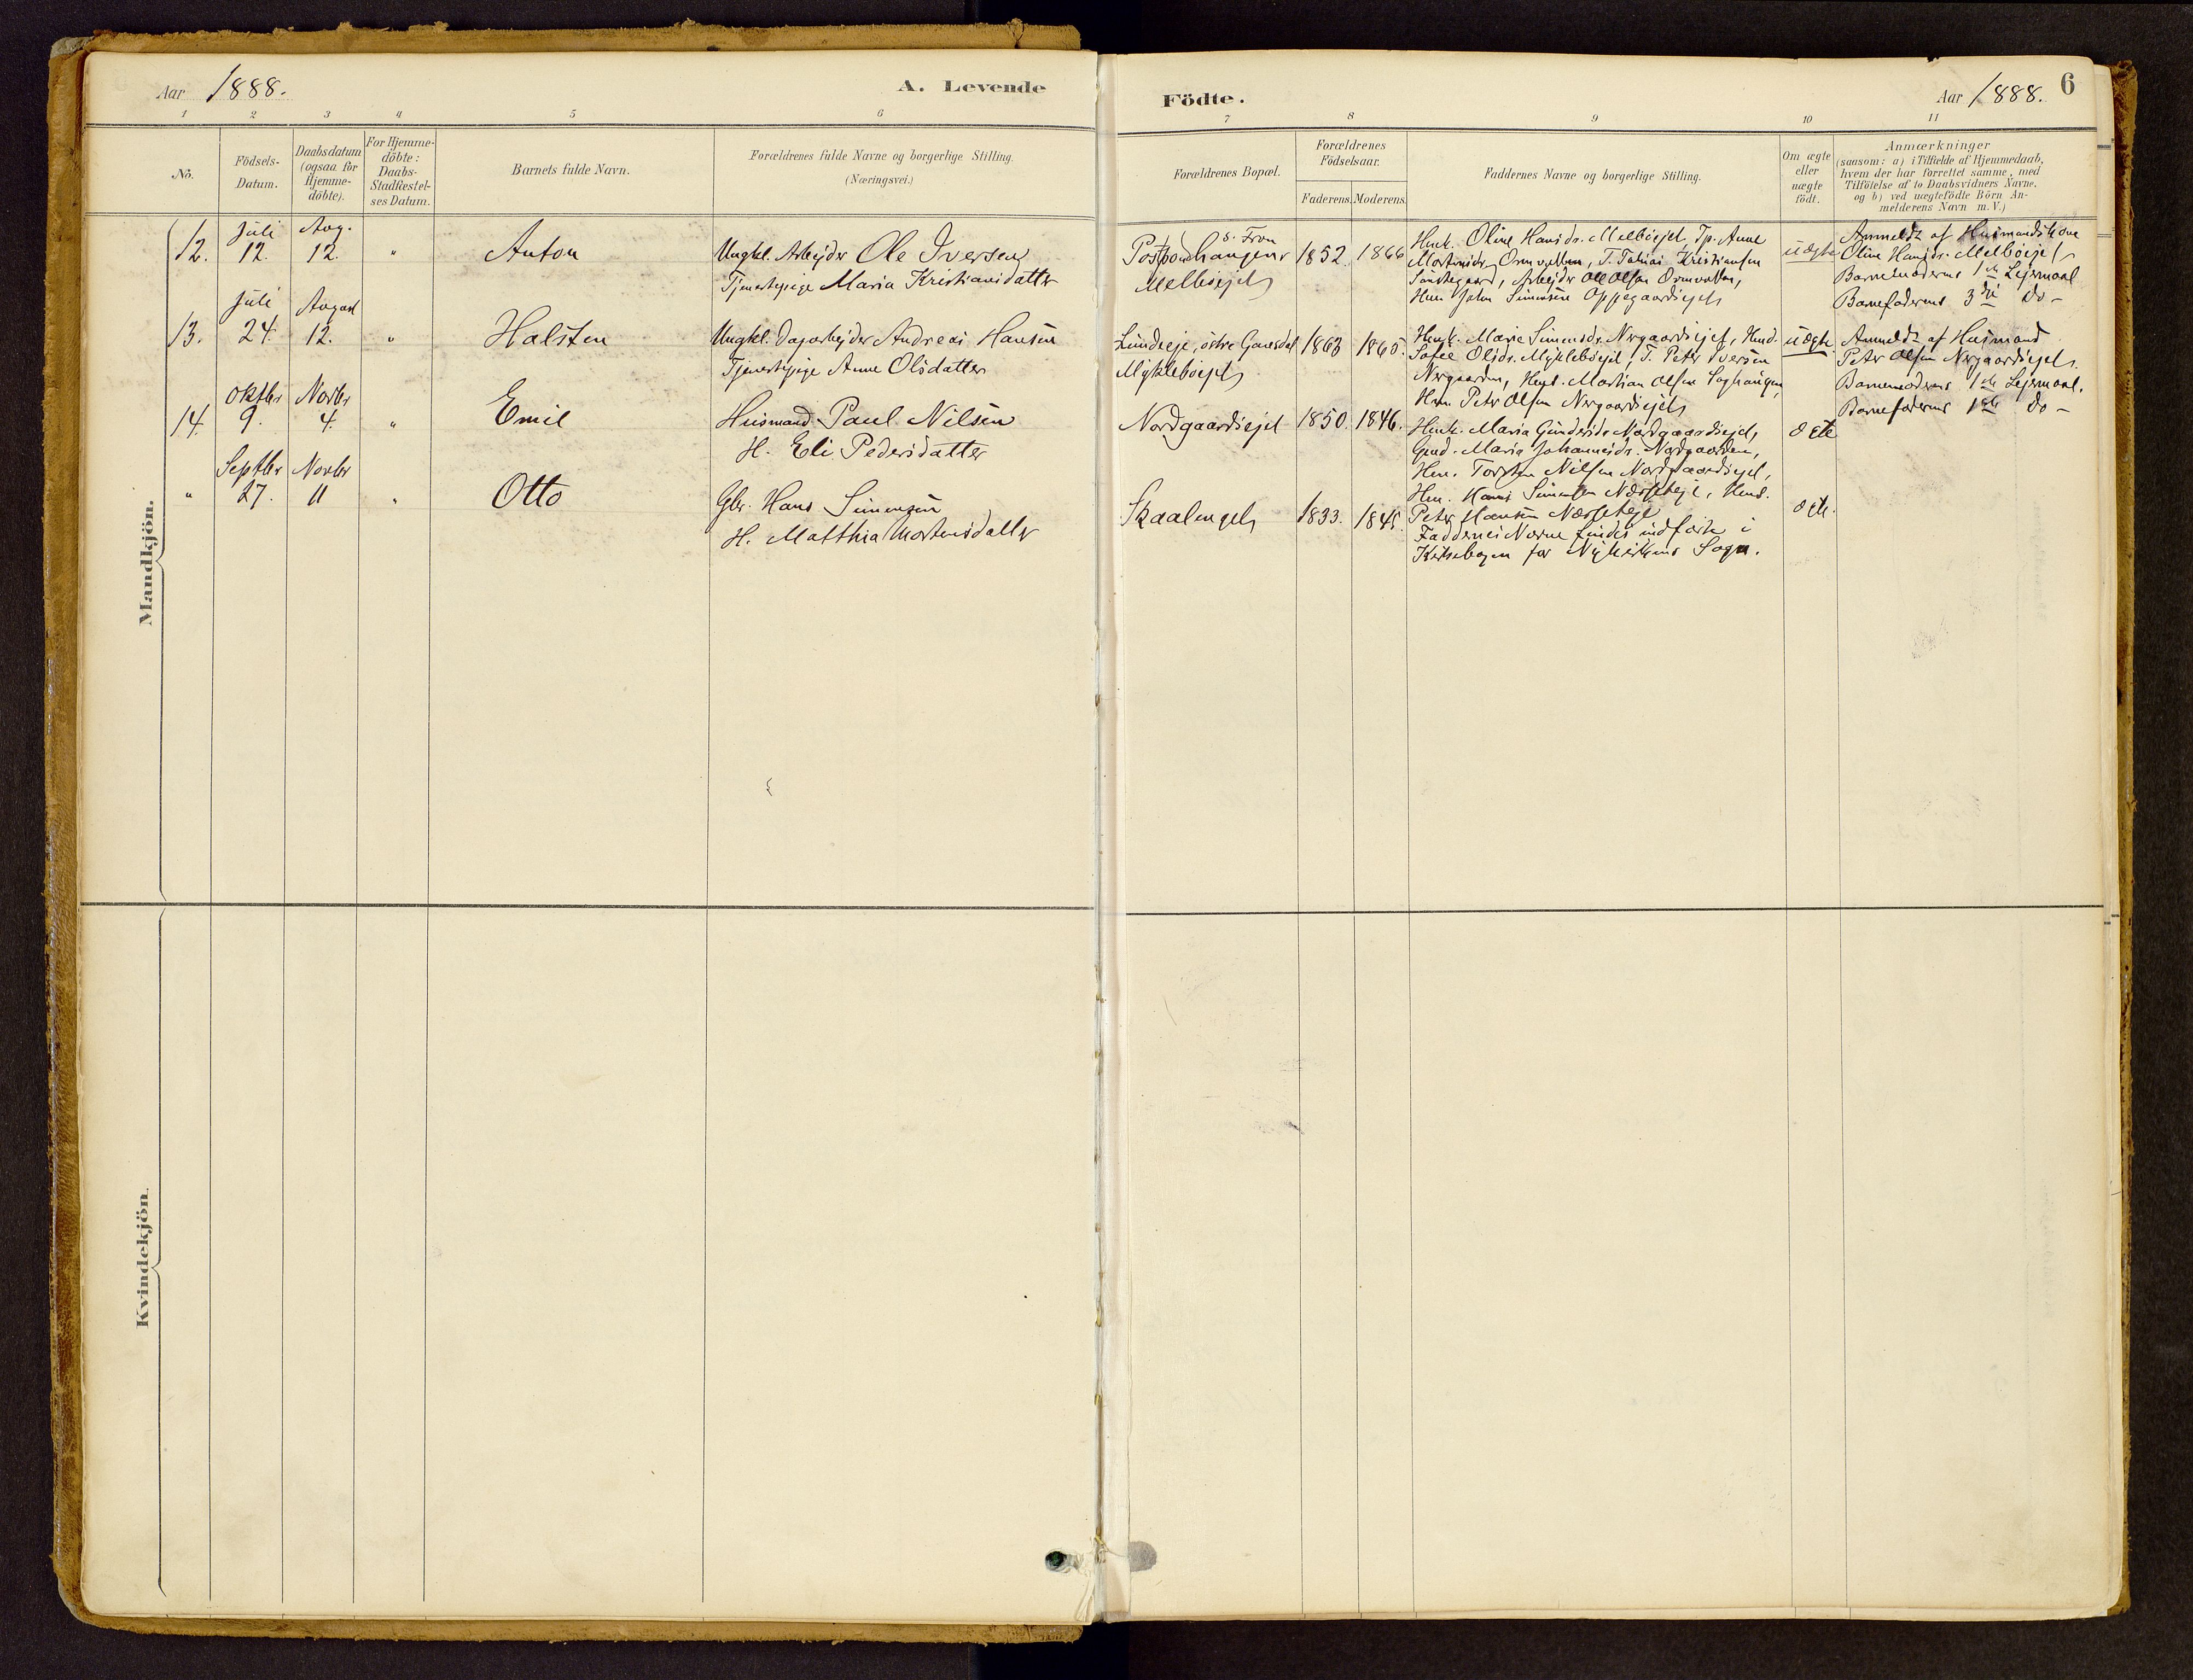 Aar 1888.
A. Levende
Födte.
Aar 1888.
6
1 2 3 4 5 6
7 8 9 10 11
No.
Födsels-
Datum.
Daabsdatum
(ogsaa for
Hjemme-
döbte).
For Hjemme-
döbte:
Daabs-
Stadfæstel-
ses Datum.
Barnets fulde Navn.
Forældrenes fulde Navne og borgerlige Stilling.
(Næringsvei.)
Forældrenes Bopæl.
Forældrenes
Födselsaar.
Faderens. Moderens.
Faddernes Navne og borgerlige Stilling.
Om ægte
eller
uægte
födt.
Anmærkninger
(saasom: a) i Tilfælde af Hjemmedaab,
hvem der har forrettet samme, med
Tilföielse af to Daabsvidners Navne,
og b) ved uægtefödte Börn An-
melderens Navn m. V.)
Mandkjön.
Juli Aug.
12. 12. 12. " Anton
Ungkl. Arbejder Ole Iversen
Tjenestepige Maria Kristiansdatter
S. Fron
Melböejet
1852. 1866
Husk. Oline Hansdr. Melböejet, Tp. Anne
Mortensdr. Ormvolden, T. Tobias Kristiansen
Arbejder Ole Olsen Ormvolden,
Hm. John Simensen Oppegaardsejet
uægte
Anmeldt af Husmandskone
Oline Hansdr. Melböejet
Barnemoderens 1ste Lejermaal
Barnefaderens 3die do -
Juli August
13. 24. 12. " Halsten
Ungkl. Dagarbejder Andreas Hansen
Tjenestepige Anne Olsdatter
Lundseje, östre Gausdal
Mykleböejet
1863 1865.
Husk. Marie Simensdr. Nergaardsejet, Husd.
Sofie Olsdr. Mykleböejet, T. Peter Iversen
Nergaarden, Husd. Martian Olsen
Hm. Peter Olsen Nergaardsejet
uægte
Anmeldt af Husmand
Peter Olsen Nergaardsejet.
Barnemoderens 1ste Lejermaal.
Barnefaderens 1ste do -
Oktbr Novbr
14. 9. 4. " Emil
Husmand Paul Nilsen
H. Eli Pedersdatter
Nordgaardsejet
1850. 1846.
Husk. Maria Gundersdr. Nordgaardsejet,
Gmd. Maria Johannesdr. Nordgaarden,
Hm. Torsten Nilsen Nordgaardsejet,
Hm. Hans Simensen Næsseteje, Husd.
Peter Hansen Næsseteje
ægte
Septbr Novbr
" 27. 11 " Otto
Gbr. Hans Simensen
H. Matthia Mortensdatter
Skaalenget
1833. 1845.
Faddernes Navne findes indförte i
Kirkebogen for Nykirkens Sogn.
ægte.
Kvindekjön.